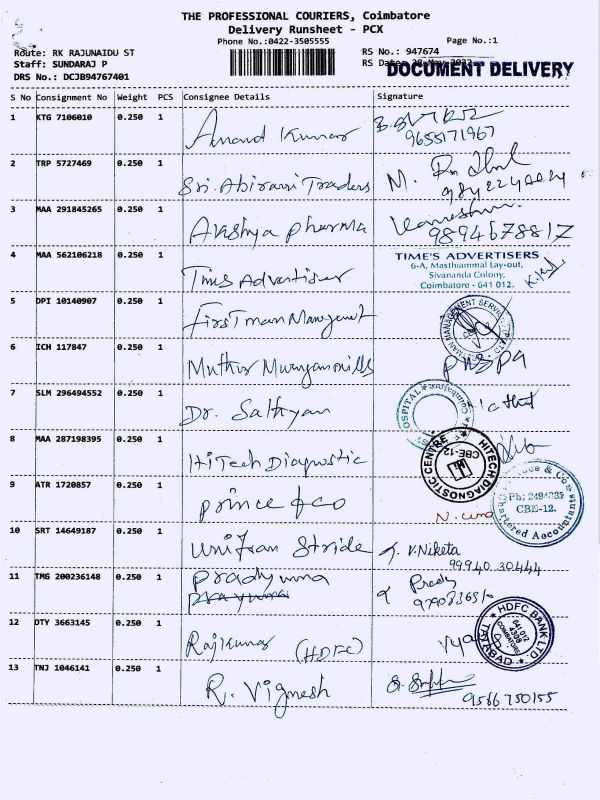 THE PROFESSIONAL COURIERS, Coimbatore
Delivery Runsheet - PCX
Phone No.:0422-3505555
Page No.:1
Route: RK RAJUNAIDU ST
RS No.: 947674
Staff: SUNDARAJ P
RS Date: 28-May-2022
DOCUMENT DELIVERY
DRS No.: DCJB94767401
S No Consignment No Weight PCS Consignee Details Signature
1 KTG 7106010 0.250 1 Anand Kumar
9655171967
2 TRP 5727469 0.250 1 Sri. Abirami Traders M.
3 MAA 291845265 0.250 1 Akshya pharma Kameshwari
9894678817
4 MAA 562106218 0.250 1 Times Advertiser
TIME'S ADVERTISERS
6-A, Masthiammal Lay-out,
Sivananda Colony,
Coimbatore - 641 012.
5 DPI 10140907 0.250 1 First man Management
MANAGEMENT SERVICES
6 ICH 117847 0.250 1 Muthu Murugan mills
7 SLM 296494552 0.250 1 Dr. Sathyan
HOSPITAL
Coimbatore
8 MAA 287198395 0.250 1 HiTech Diagnostic
HITECH DIAGNOSTIC CENTRE
CBE-12
9 ATR 1720857 0.250 1 prince & co
& Co
Ph: 2494735
CBE-12.
Chartered Accountants
10 SRT 14649187 0.250 1 Unifran Stride V. Niketa
99940 30444
11 TMG 200236148 0.250 1 Pradyumna Prady
12 OTY 3663145 0.250 1 Rajkumar (HDFC)
HDFC BANK LTD.
641 012
4398
COIMBATORE
TATABAD
13 TNJ 1046141 0.250 1 R. Vignesh
9566750155